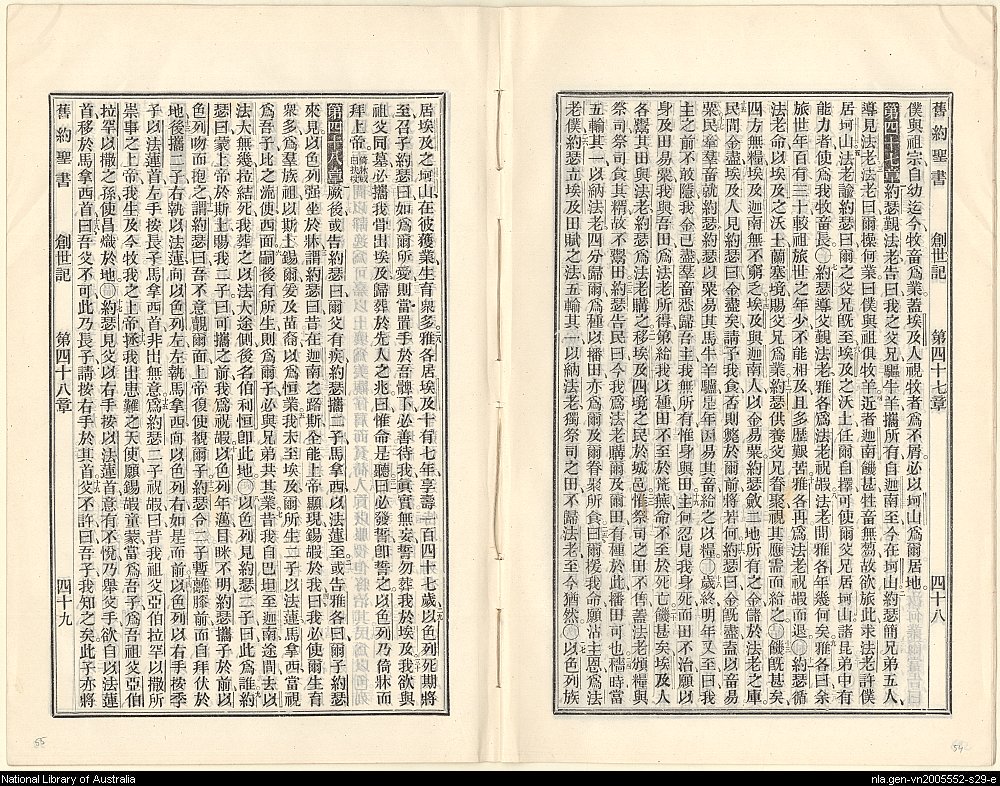 舊約聖書 創世記 第四十七章 四十八
僕與祖宗自幼迄今牧畜爲業蓋埃及人視牧者爲不屑必以坷山爲爾居地
第四十七章約瑟覲法老告曰我之父兄驅牛羊攜所有自迦南至今在坷山約瑟簡兄弟五人
導見法老法老曰爾操何業曰僕與祖俱牧羊近者迦南饑甚牲畜無芻故欲旅此求法老許僕
居坷山法老諭約瑟曰爾之父兄旣至埃及之沃土任爾自擇可使爾父兄居坷山諸昆弟中有
能力者使爲我牧畜長約瑟導父覲法老雅各爲法老祝嘏法老問雅各年幾何矣雅各曰余
旅世年百有三十載祖旅世之年少不能相及且多歷艱苦雅各再爲法老祝嘏而退約瑟循
法老命以埃及之沃土蘭塞境賜父兄爲業約瑟供養父兄眷聚視其應需而給之饑旣甚矣
四方無糧埃及迦南無不窮乏埃及與迦南人以金易粟約瑟斂二地所有之金儲於法老之庫
民間金盡埃及人見約瑟曰金盡矣請予我食否則斃於爾前將若何約瑟曰金旣盡盍以畜易
粟民牽羣畜就約瑟約瑟以粟易其馬牛羊驢是年因易其畜給之以糧歲終明年又至曰我
主之前不敢隱我金已盡羣畜悉歸吾主我無所有惟身與田主何忍見我身死而田不治願以
身及田易粟我與吾田爲法老所得第給我以種田不至於荒蕪命不至於死亡饑甚矣埃及人
各鬻其田約瑟爲法老購之移埃及四境之民於城邑惟祭司之田不售蓋法老頒糧與
祭司祭司食其糈故不鬻田約瑟告民曰今我爲法老購爾及爾田有種於此播田可也穡時當
五輸其一以納法老四分歸爾爲種以播田亦爲爾及爾眷聚所食曰爾援我命願沾主恩爲法
老僕約瑟立埃及田賦之法五輸其一以納法老惟祭司之田不歸法老至今猶然以色列族
居埃及之坷山在彼獲業生育衆多雅各居埃及十有七年享壽一百四十七歲以色列死期將
至召子約瑟曰如爲爾所愛則當置手於吾髀下必善待我眞實無妄誓勿葬我於埃及我欲與
祖父同墓必攜我骨出埃及歸葬於先人之兆曰惟命是聽曰必發誓卽誓之以色列乃倚牀而
拜上帝
第四十八章厥後或告約瑟曰爾父有疾約瑟攜二子馬拿西以法蓮至或告雅各曰爾子約瑟
來見以色列强坐於牀謂約瑟曰昔在迦南之路斯全能上帝顯現錫嘏於我曰我必使爾生育
衆多爲羣族祖以斯土錫爾爰及苗裔以爲恒業我未至埃及爾所生二子以法蓮馬拿西當視
爲吾子比之流便西面嗣後有所生則爲爾子必與兄弟共其業昔我自巴坦至迦南途間去以
法大無幾拉結死我葬之以法大途側後名伯利恒卽此地以色列見約瑟二子曰此爲誰約
瑟曰我蒙上帝於斯土賜我二子曰可攜之前我爲祝嘏以色列年邁目眯不明約瑟攜子於前以
色列吻而抱之謂約瑟曰吾不意覿爾面上帝復使視爾子約瑟令二子暫離膝前而自拜伏於
地後攜二子右執以法蓮向以色列左左執馬拿西向以色列右如是而前以色列以右手按季
子以法蓮首左手按長子馬拿西首非出無意爲約瑟二子祝嘏曰昔我祖父亞伯拉罕以撒所
崇事之上帝我生及今牧我之上帝拯我出患難之天使願錫嘏童蒙當爲吾子爲吾祖父亞伯
拉罕以撒之孫使昌熾於地約瑟見父以右手按以法蓮首意有不悅乃舉父手欲自以法蓮
首移於馬拿西首曰吾父不可此乃長子請按右手於其首父不許曰吾子我知之矣此子亦將
舊約聖書 創世記 第四十八章 四十九
55
54
National Library of Australia
nla.gen-vn2005552-s29-e